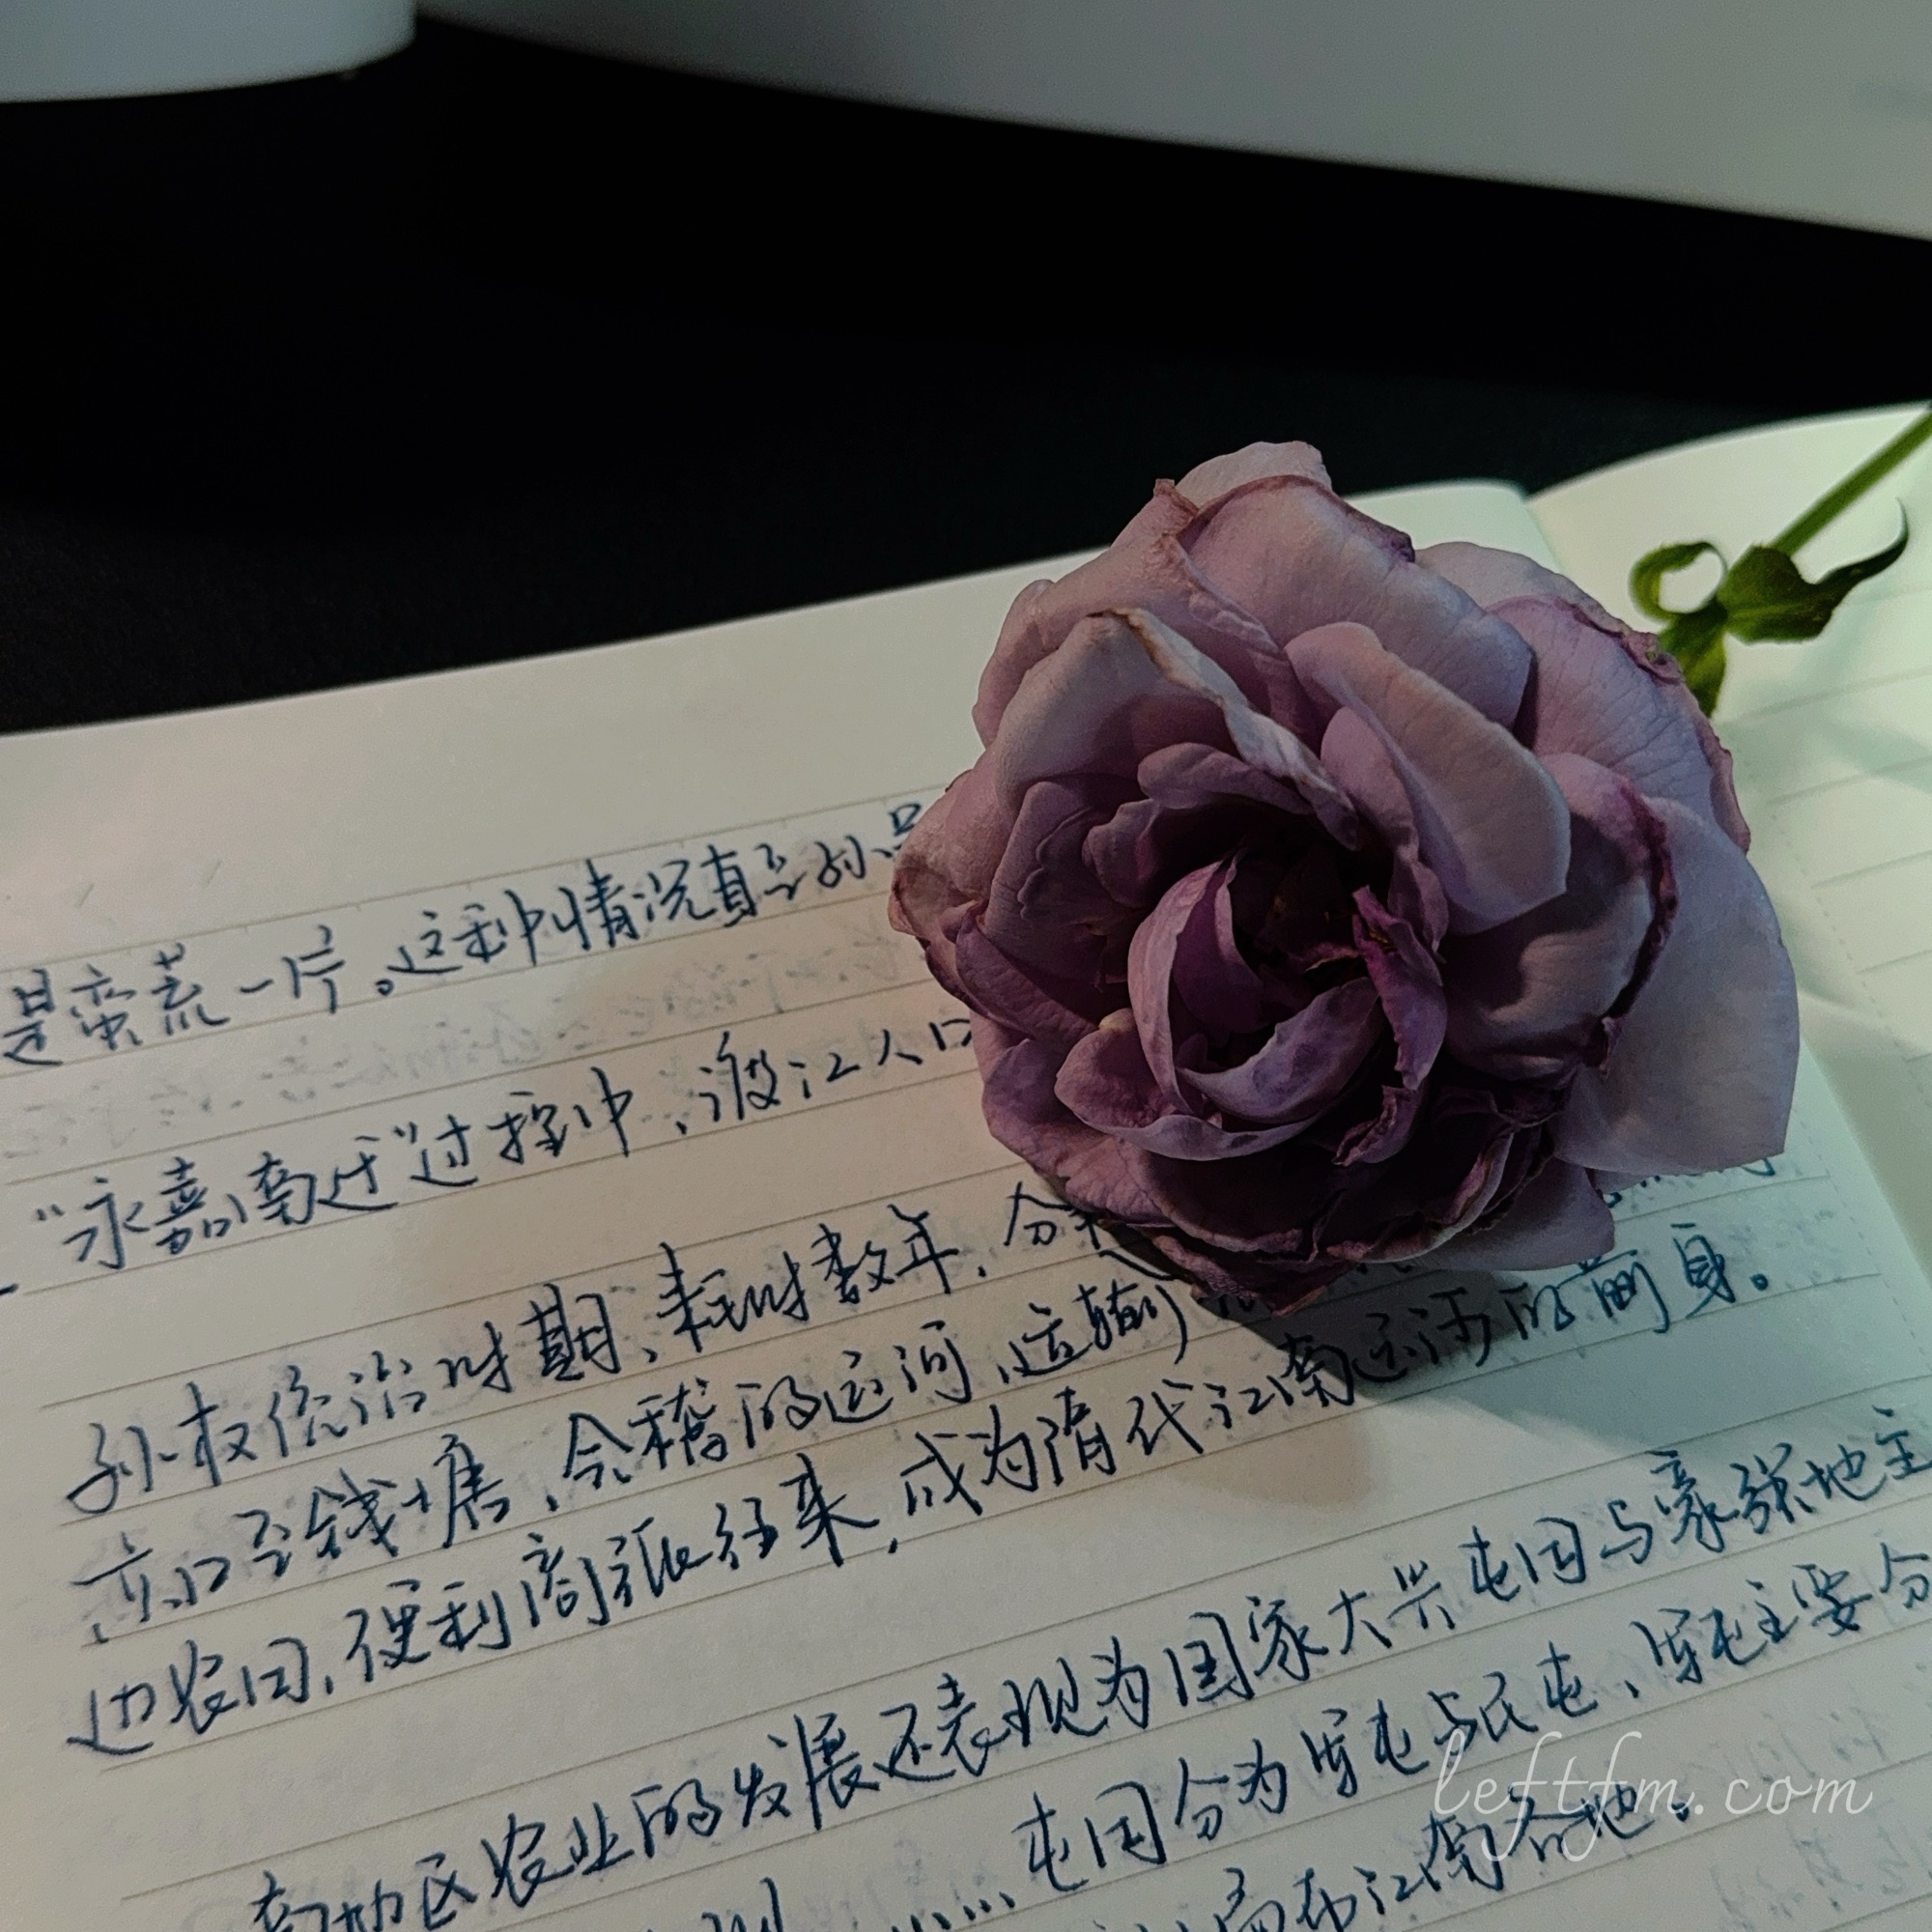 是蛮荒一片。这种情况直至孙吴
“永嘉南迁”过程中，渡江人口
孙权统治时期，耗时数年，分
京口至钱塘、会稽的运河，运输
边农田，便利商旅往来，成为隋代江南运河的前身。
地区农业的发展还表现为国家大兴屯田与豪强地主
屯田分为军屯与民屯，军屯主要分
布江南各地。
leftfm.com